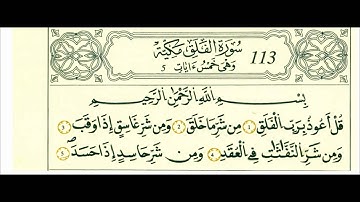 سُورَةُ الْفَلَقِ مَكِّيَّةٌ
وَهِيَ خَمْسُ ءَايَاتٍ
113
بِسْمِ اللَّهِ الرَّحْمَٰنِ الرَّحِيمِ
قُلْ أَعُوذُ بِرَبِّ الْفَلَقِ ١ مِن شَرِّ مَا خَلَقَ ٢ وَمِن شَرِّ غَاسِقٍ إِذَا وَقَبَ ٣
وَمِن شَرِّ النَّفَّٰثَٰتِ فِي الْعُقَدِ ٤ وَمِن شَرِّ حَاسِدٍ إِذَا حَسَدَ ٥